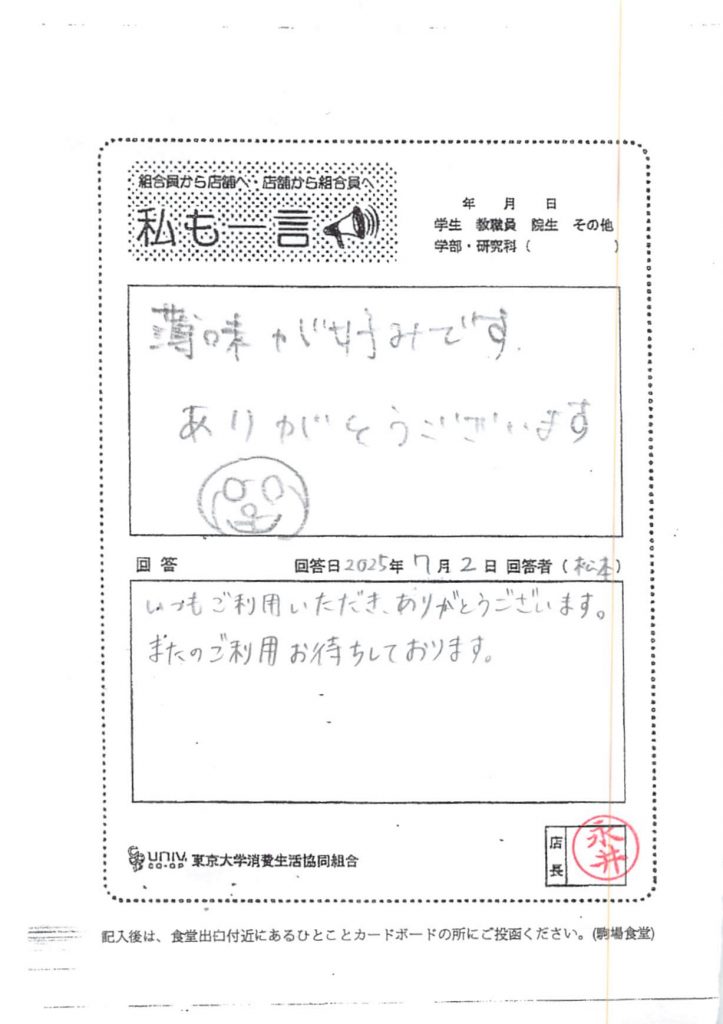 組合員から店舗へ・店舗から組合員へ
私も一言
年 月 日
学生 教職員 院生 その他
学部・研究科 ( )
薄味が好みです.
ありがとうございます
回答 回答日2025年 7月 2日 回答者 (松本)
いつもご利用いただき、ありがとうございます。
またのご利用お待ちしております。
UNIV. CO-OP 東京大学消費生活協同組合
店長 永井
記入後は、食堂出口付近にあるひとことカードボードの所にご投函ください。(駒場食堂)